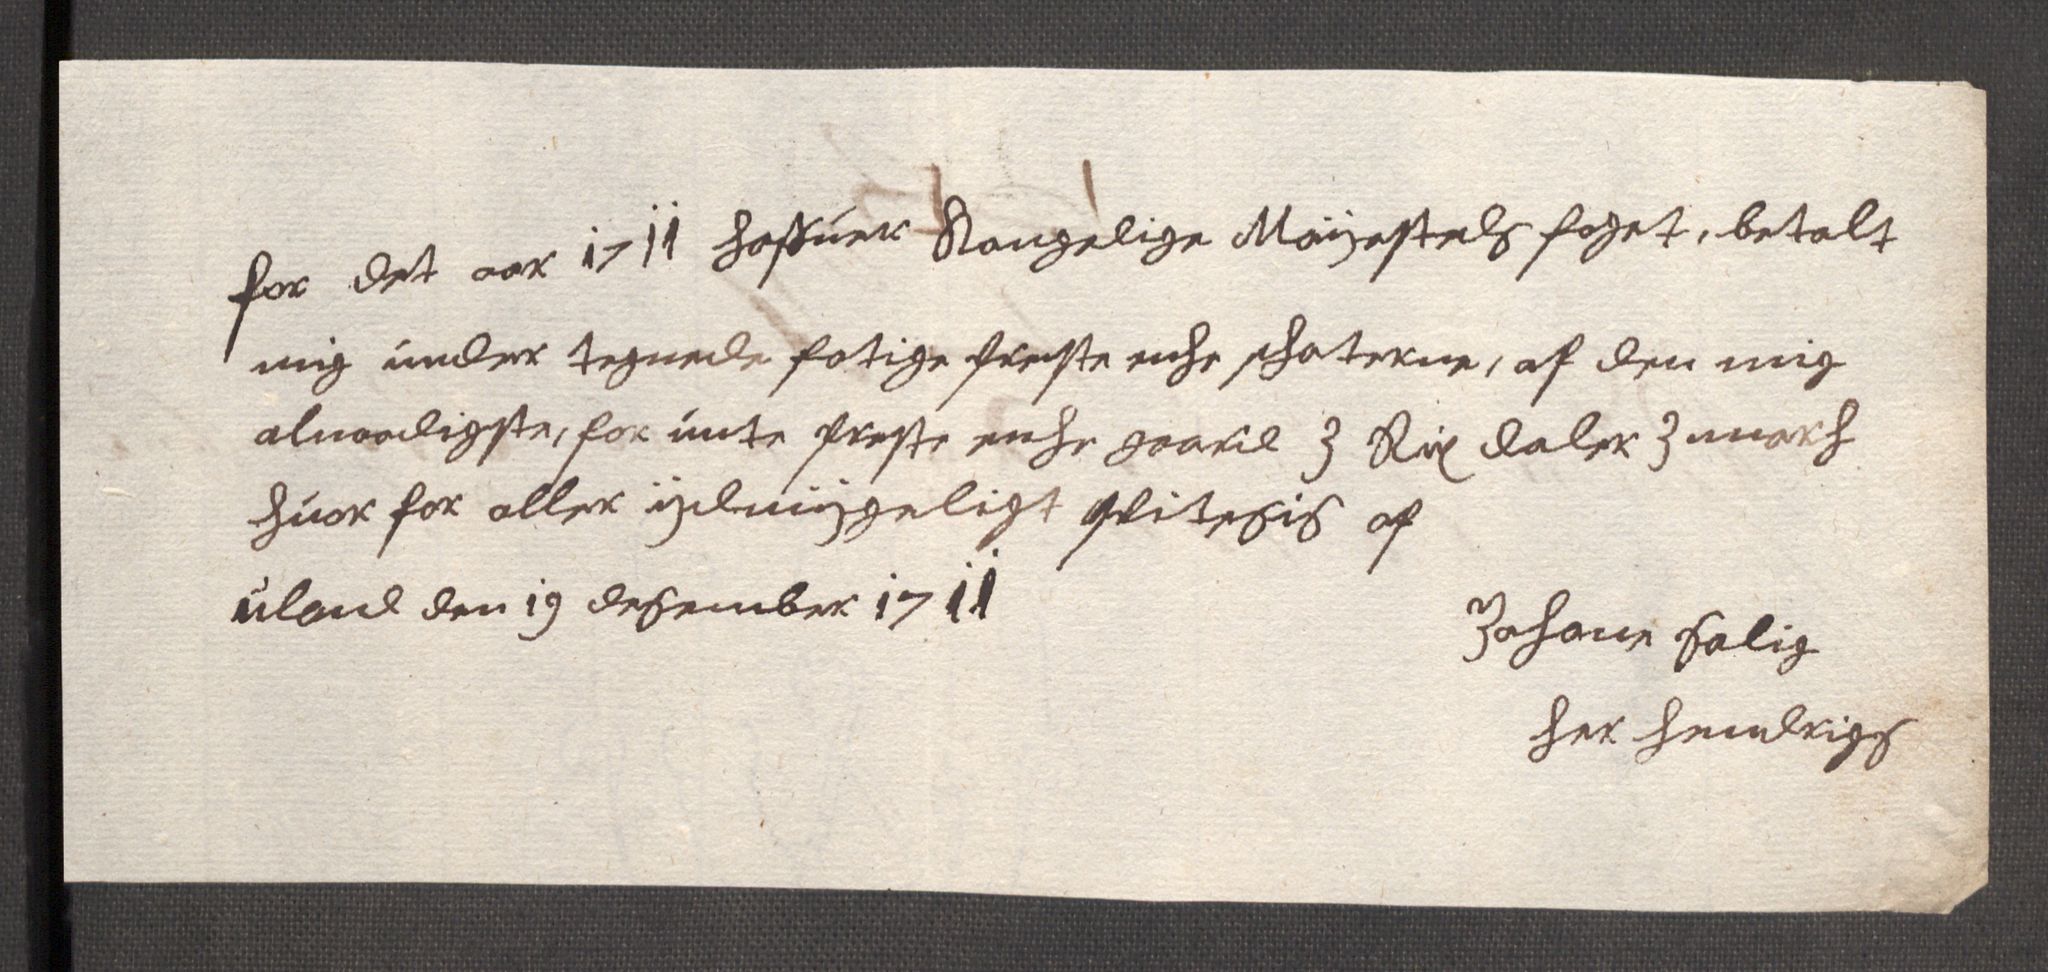 for det aar 1711 hafuer Kongelige Maÿestets foget, betalt
mig under tegnede fatige preste enche schaterne, af den mig
alnaadigste, for unte preste enche gaard 3 Rix daler 3 march
huor for aller ÿdmÿgeligt qvitesis af
uland den 19 desember 1711
Johane salig
her hendrigs